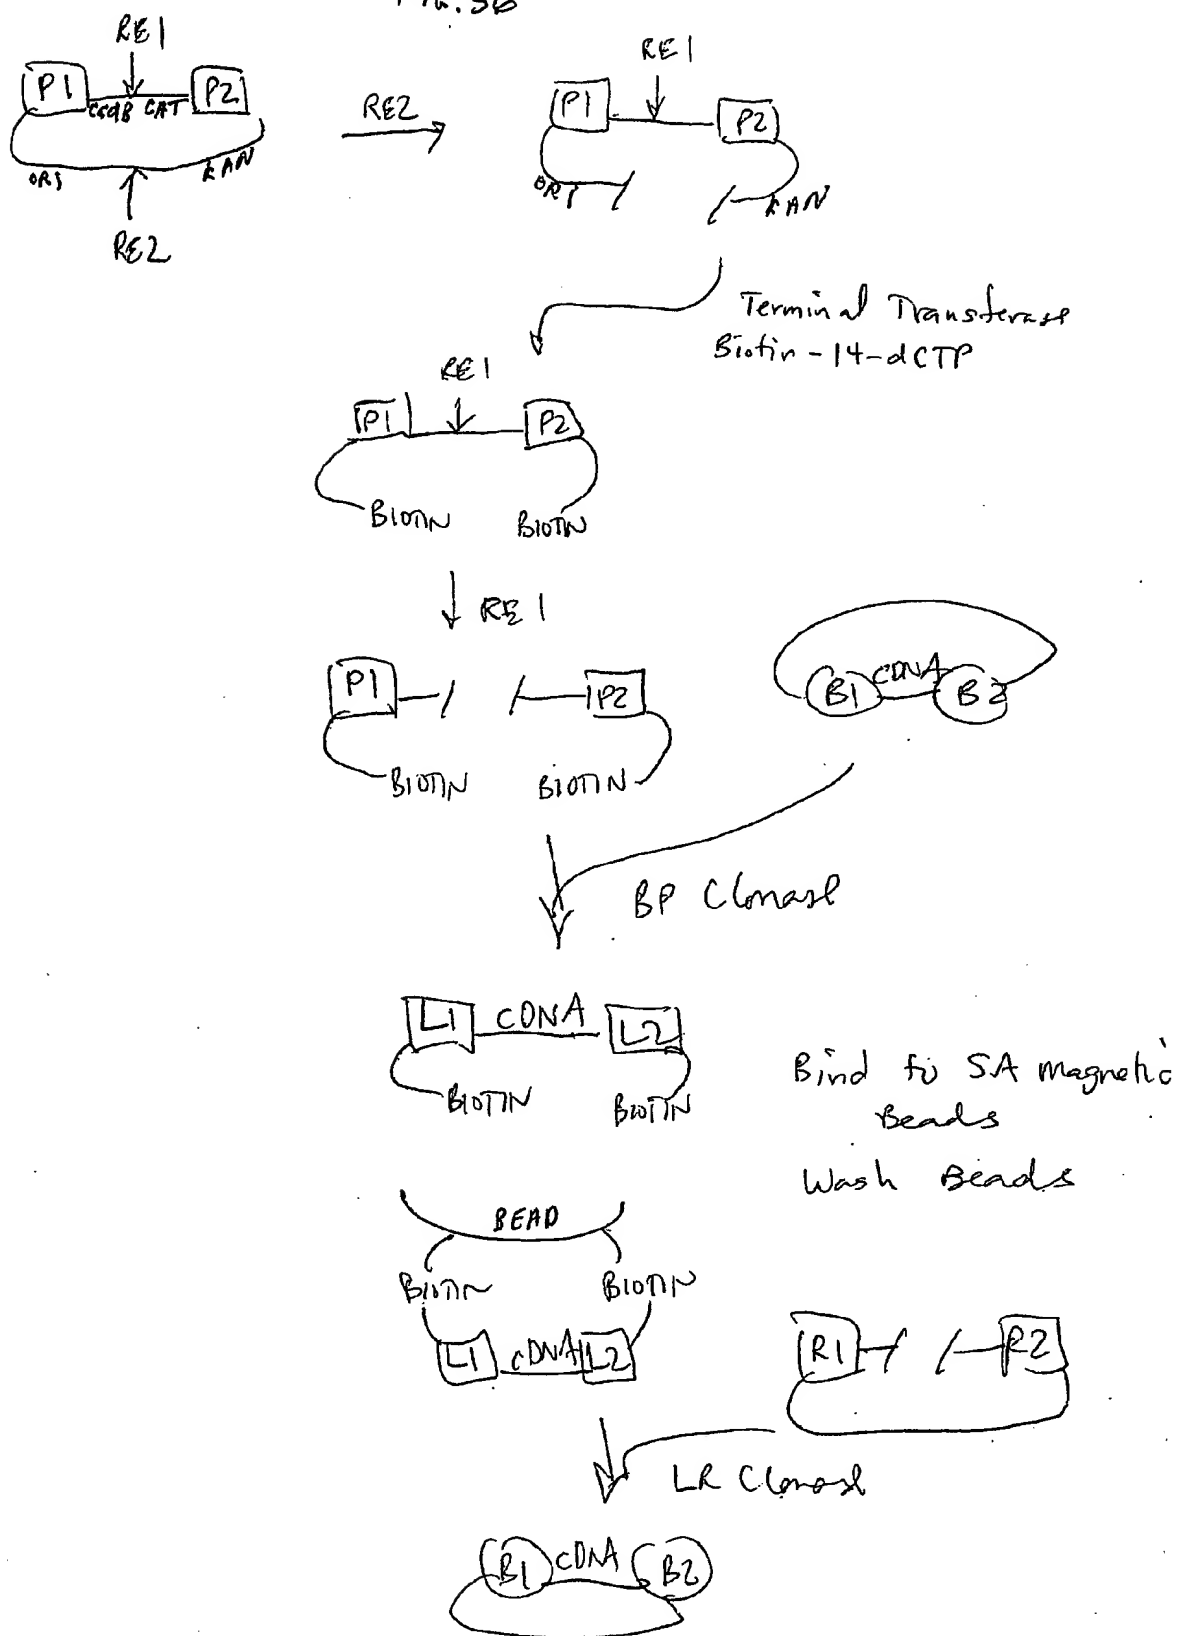 RE1
P1
P2
CCdB CAT
ORI
KAN
RE2
RE2
RE1
P1
P2
ORI
KAN
Terminal Transferase
Biotin-14-dCTP
RE1
P1
P2
BIOTIN
BIOTIN
RE1
P1
P2
BIOTIN
BIOTIN
B1
CDNA
B2
BP Clonase
L1
CDNA
L2
BIOTIN
BIOTIN
Bind to SA magnetic
Beads
Wash Beads
BEAD
BIOTIN
BIOTIN
L1
cDNA
L2
R1
R2
LR Clonase
B1
CDNA
B2